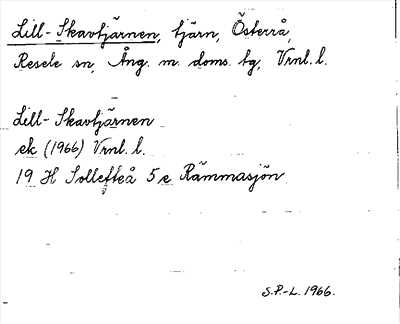 Lill-Skavtjärnen, tjärn, Österrå,
Resele sn, Ång. m. doms. tg, Vrnl. l.
Lill-Skavtjärnen
ek (1966) Vrnl. l.
19 H Sollefteå 5 e Rämmasjön
S.P.-L. 1966.